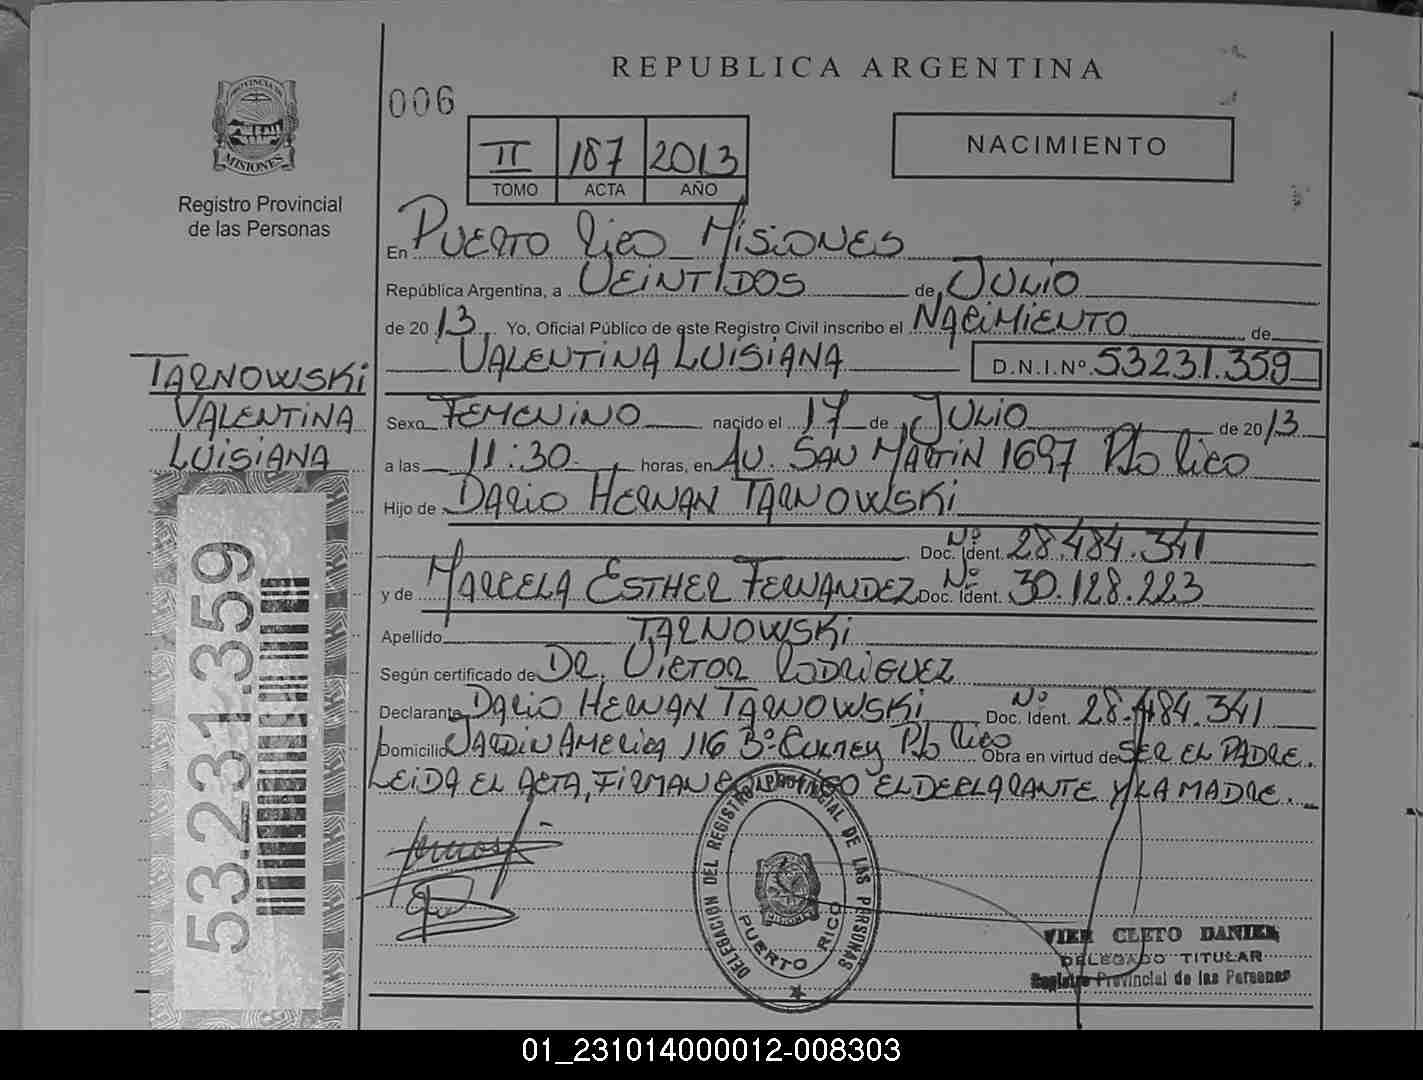 REPUBLICA ARGENTINA
006
PROVINCIA DE
MISIONES
Registro Provincial
de las Personas
II 187 2013
TOMO ACTA AÑO
NACIMIENTO
En PUERTO RICO MISIONES
República Argentina, a VEINTIDOS de JULIO
de 2013 Yo, Oficial Público de este Registro Civil inscribo el NACIMIENTO de
VALENTINA LUISIANA D.N.I.Nº 53.231.359
TARNOWSKI
VALENTINA
LUISIANA
Sexo FEMENINO nacido el 17 de JULIO de 2013
a las 11:30 horas, en AV. SAN MARTIN 1697 Pto RICO
Hijo de DARIO HERNAN TARNOWSKI
Nº
Doc. Ident. 28.484.341
y de MARCELA ESTHER FERNANDEZ Doc. Ident. Nº 30.128.223
Apellido TARNOWSKI
Según certificado de DR. VICTOR RODRIGUEZ
Declarante DARIO HERNAN TARNOWSKI Doc. Ident. Nº 28.484.341
Domicilio JARDIN AMERICA 116 Bº Pto RICO Obra en virtud de SER EL PADRE.
LEIDA EL ACTA, FIRMAN CONMIGO EL DECLARANTE Y LA MADRE.
53.231.359
DELEGACIÓN DEL REGISTRO PROVINCIAL DE LAS PERSONAS
MISIONES
PUERTO RICO
VIER CLETO DANIEL
DELEGADO TITULAR
Registro Provincial de las Personas
01_231014000012-008303